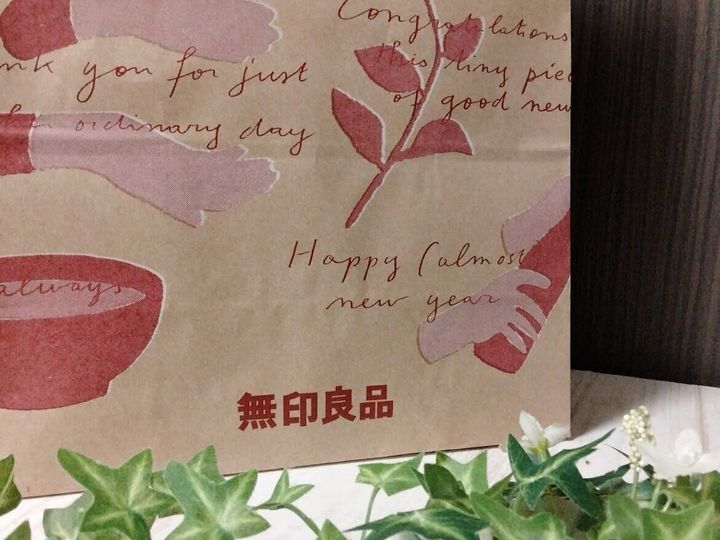 Congratulations
this tiny piece
of good new
nk you for just
ordinary day
Happy (almost
new year
always
無印良品